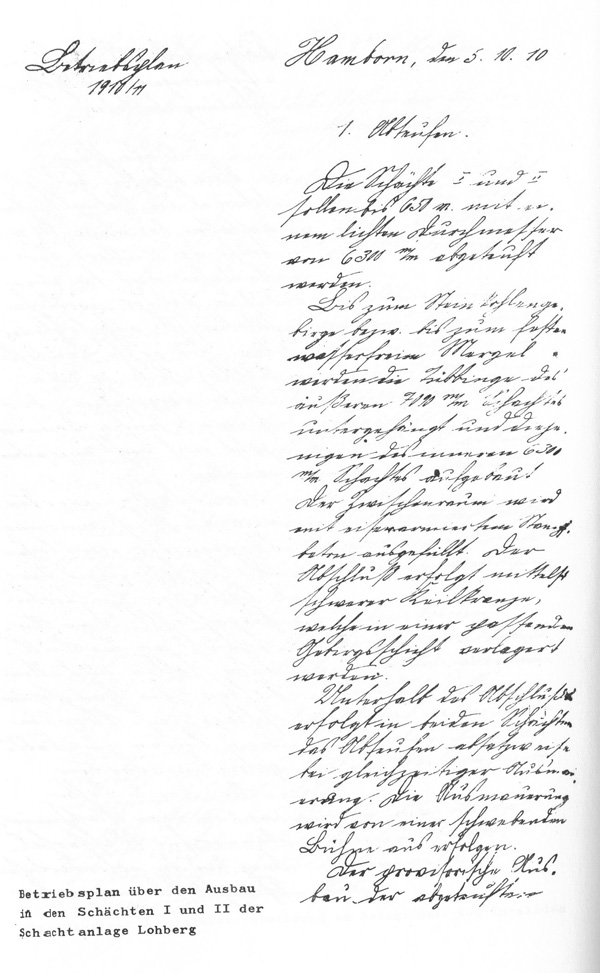 Betriebsplan
1910/11
Hamborn, den 5. 10. 10
1. Abteufen.
Die Schächte I und II
sollen bis 650 m. mit ei-
nem lichten Durchmesser
von 6300 m/m abgeteuft
werden.
Bis zum Steinkohlenge-
birge bezw. bis zum festen
wasserfreien Mergel
werden die Tübbinge des
äußeren m/m Schachtes
untergehängt und dieje-
nigen des inneren 6300
m/m Schachtes aufgebaut.
Der Zwischenraum wird
mit eisenarmiertem Stampf-
beton ausgefüllt. Der
Abschluß erfolgt mittelst
schwerer Keilkränze,
welche in einer passenden
Gebirgsschicht verlagert
werden.
Unterhalb des Abschlußes
erfolgt in beiden Schächten
das Abteufen absatzweise
bei gleichzeitiger Ausmau-
erung. Die Ausmauerung
wird von einer schwebenden
Bühne aus erfolgen.
Der provisorische Aus-
bau der abgeteuften
Betriebsplan über den Ausbau
in den Schächten I und II der
Schachtanlage Lohberg